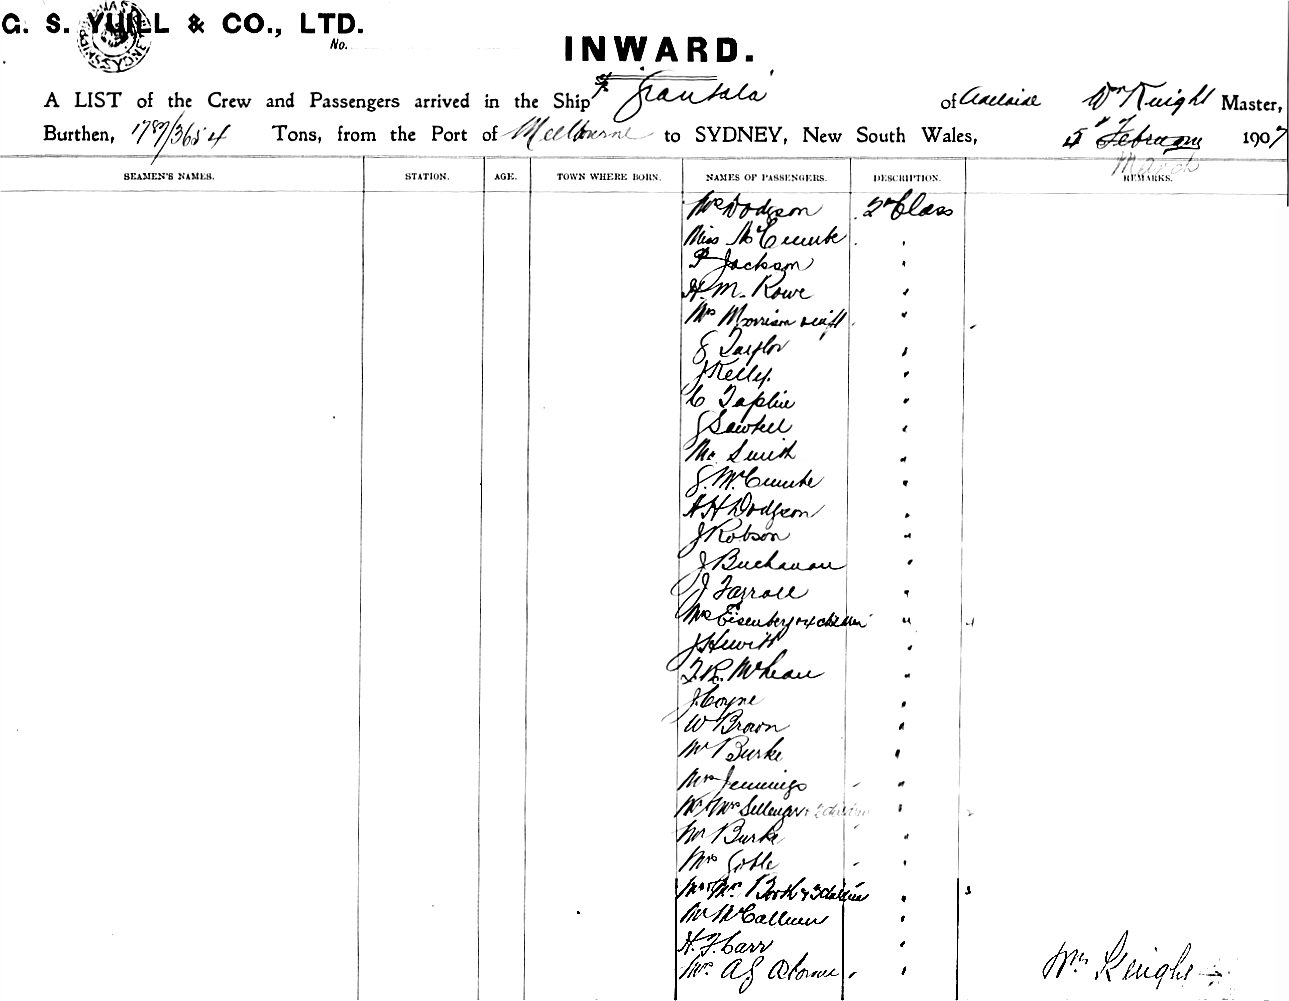 G. S. YUILL & CO., LTD.
No.
INWARD.
A LIST of the Crew and Passengers arrived in the Ship Grantala of Adelaide Wm Knight Master,
Burthen, 1787/3654 Tons, from the Port of Melbourne to SYDNEY, New South Wales, 5 February 1907
March
SEAMEN'S NAMES. STATION. AGE. TOWN WHERE BORN. NAMES OF PASSENGERS. DESCRIPTION. REMARKS.
Mrs Dodgson 2nd Class
Miss McCumbe "
P Jackson "
H. M. Rowe "
Mrs Morrison & inft "
G Taylor "
J Kelly "
C Taplin "
J Sawtell "
Mr Smith "
G. McCumbe "
A H Dodgson "
J Robson "
J Buchanan "
J Farrall "
Mrs Eisenberg & 4 children " 4
J Hewitt "
J. R. McLean "
J. Coyne "
W Brown "
Mr Burke "
Mrs Jennings "
Mr & Mrs Sellenger & 2 children " 2
Mr Burke "
Mrs Goble "
Mr & Mrs Booth & 3 children " 3
Mr McCallum "
H. F. Carr "
Mr. A G Osborne "
Wm Knight